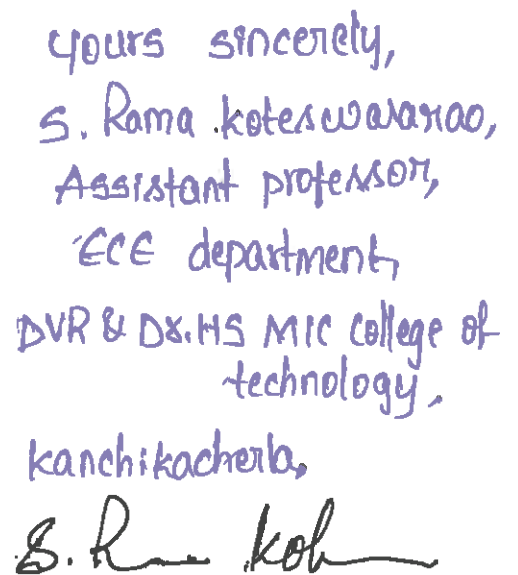 yours sincerely,
S. Rama koteswararao,
Assistant professor,
ECE department,
DVR & Dr.HS MIC College of
technology,
kanchikacherla,
S. Ra Kot